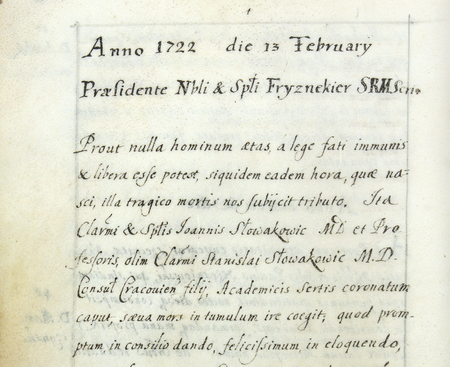 Anno 1722 die 13 February
Præsidente Nbli & Sptli Fryznekier SRM
Prout nulla hominum ætas, a lege fati immunis
& libera esse potest, siquidem eadem hora, quæ na-
sci, illa tragico mortis nos subijcit tributo. Ita
Clarmi & Sptlis Ioannis Słowakowic MD et Pro
fessoris, olim Clarmi Stanislai Słowakowic M.D.
Consul Cracovien filij, Academicis sertis coronatum
caput, sæva mors in tumulum ire coegit; quod prom-
ptum, in consilio dando, felicissimum, in eloquendo,